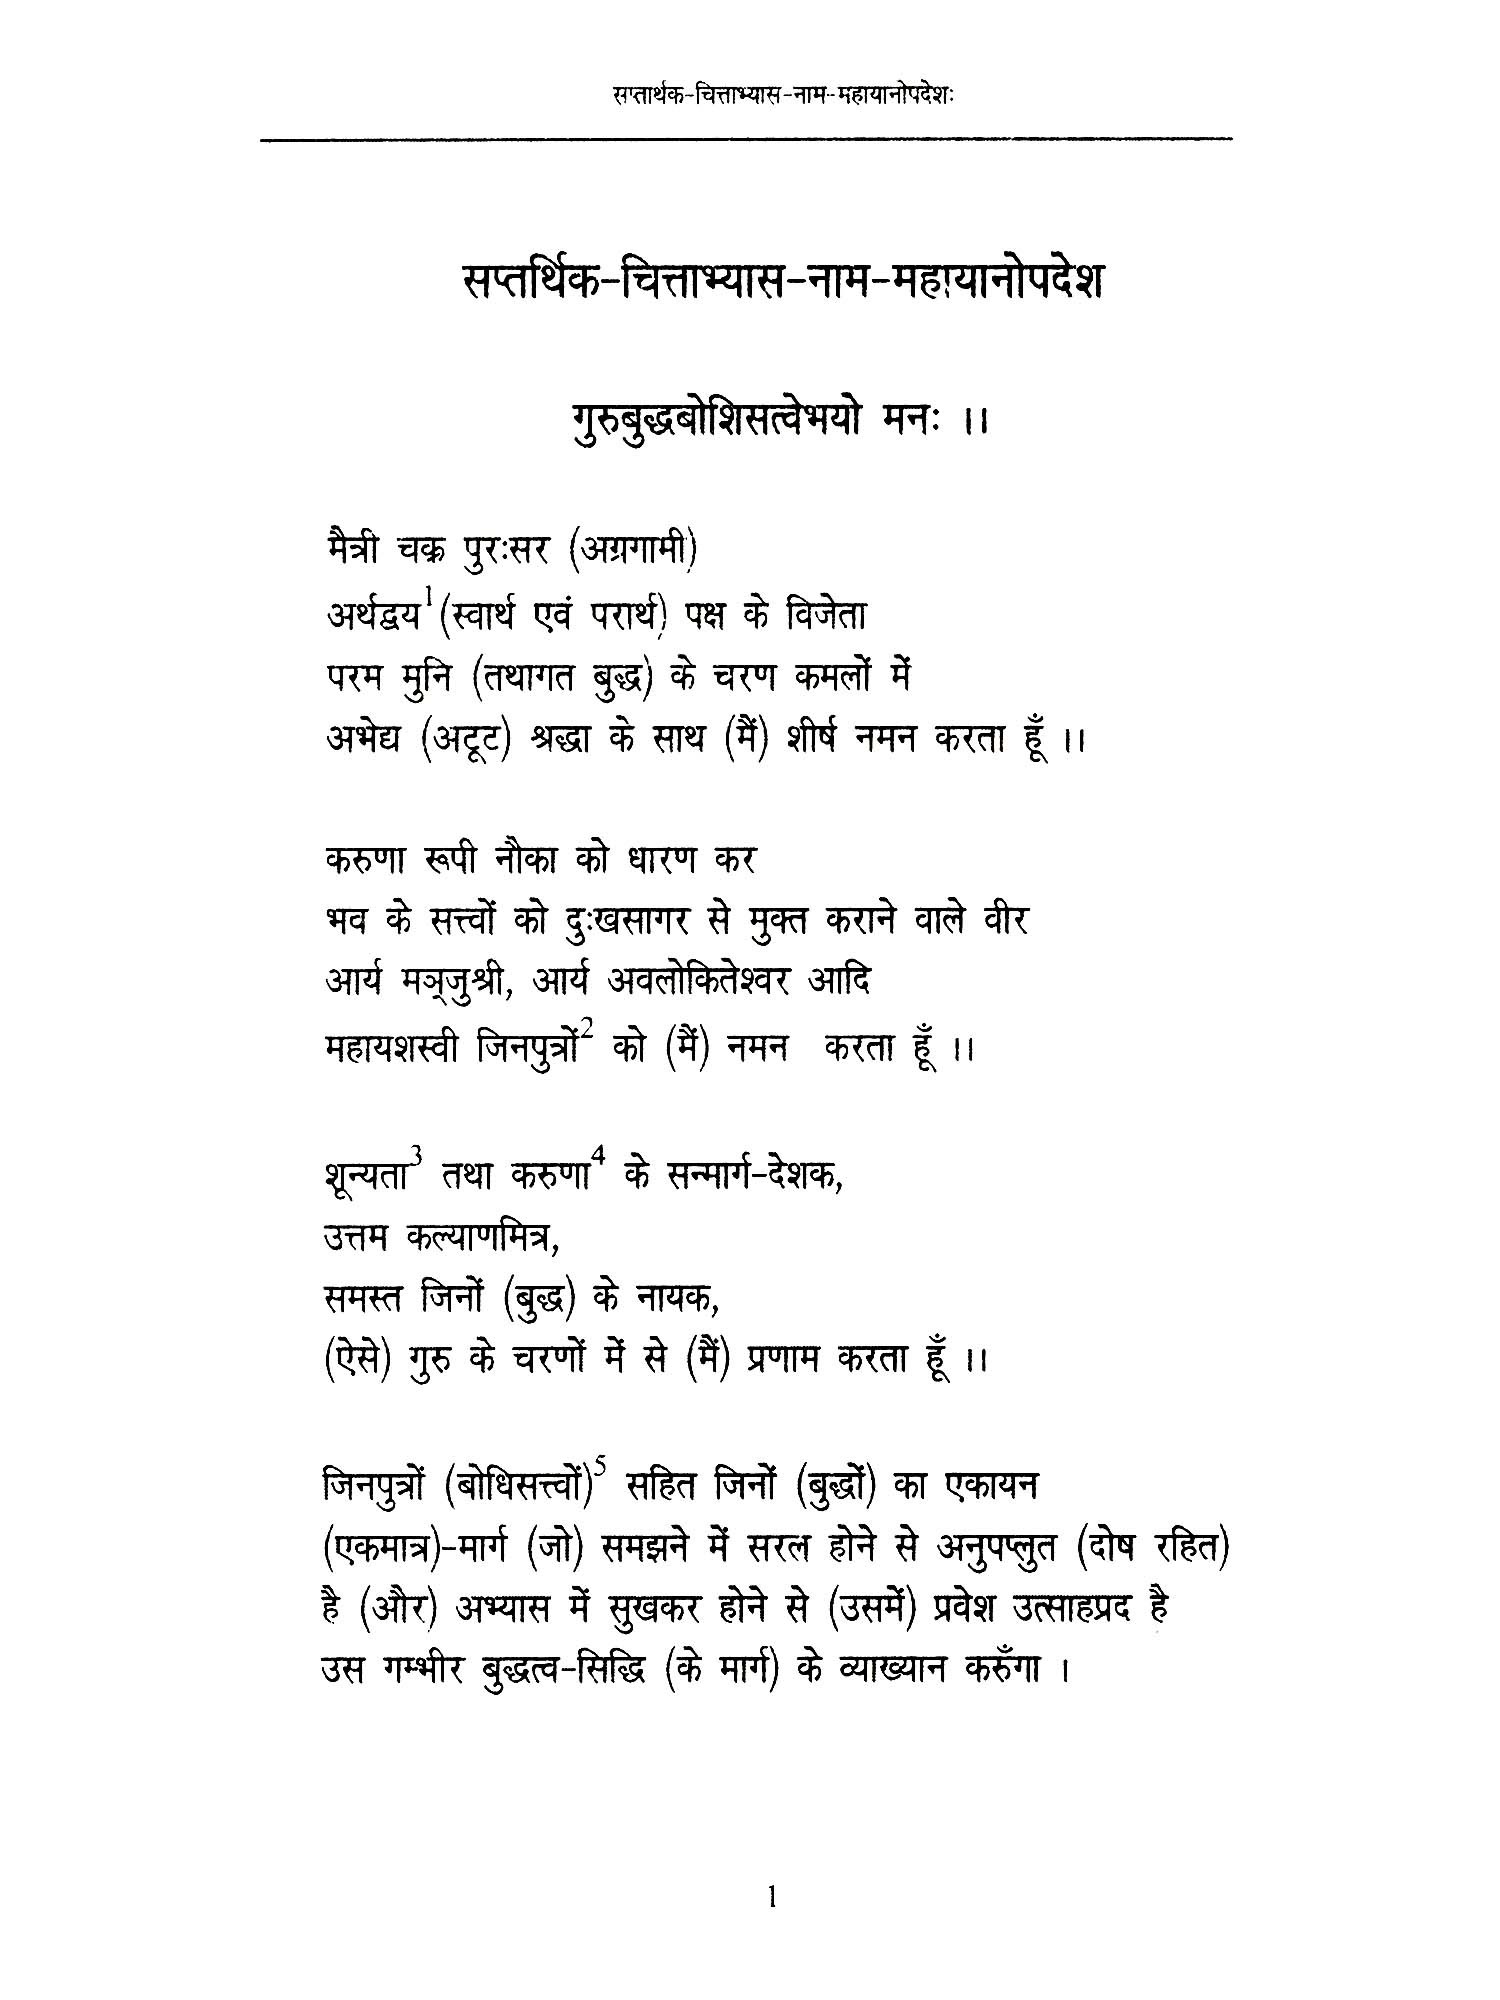 सप्तार्थक-चित्ताभ्यास-नाम-महायानोपदेशः
सप्तर्थिक-चित्ताभ्यास-नाम-महायानोपदेश
गुरुबुद्धबोशिसत्वेभयो मनः ।।
मैत्री चक्र पुरःसर (अग्रगामी)
अर्थद्वय¹ (स्वार्थ एवं परार्थ) पक्ष के विजेता
परम मुनि (तथागत बुद्ध) के चरण कमलों में
अभेद्य (अटूट) श्रद्धा के साथ (मैं) शीर्ष नमन करता हूँ ।।
करुणा रूपी नौका को धारण कर
भव के सत्त्वों को दुःखसागर से मुक्त कराने वाले वीर
आर्य मञ्जुश्री, आर्य अवलोकितेश्वर आदि
महायशस्वी जिनपुत्रों² को (मैं) नमन करता हूँ ।।
शून्यता³ तथा करुणा⁴ के सन्मार्ग-देशक,
उत्तम कल्याणमित्र,
समस्त जिनों (बुद्ध) के नायक,
(ऐसे) गुरु के चरणों में से (मैं) प्रणाम करता हूँ ।।
जिनपुत्रों (बोधिसत्त्वों)⁵ सहित जिनों (बुद्धों) का एकायन
(एकमात्र)-मार्ग (जो) समझने में सरल होने से अनुपप्लुत (दोष रहित)
है (और) अभ्यास में सुखकर होने से (उसमें) प्रवेश उत्साहप्रद है
उस गम्भीर बुद्धत्व-सिद्धि (के मार्ग) के व्याख्यान करुँगा ।
1